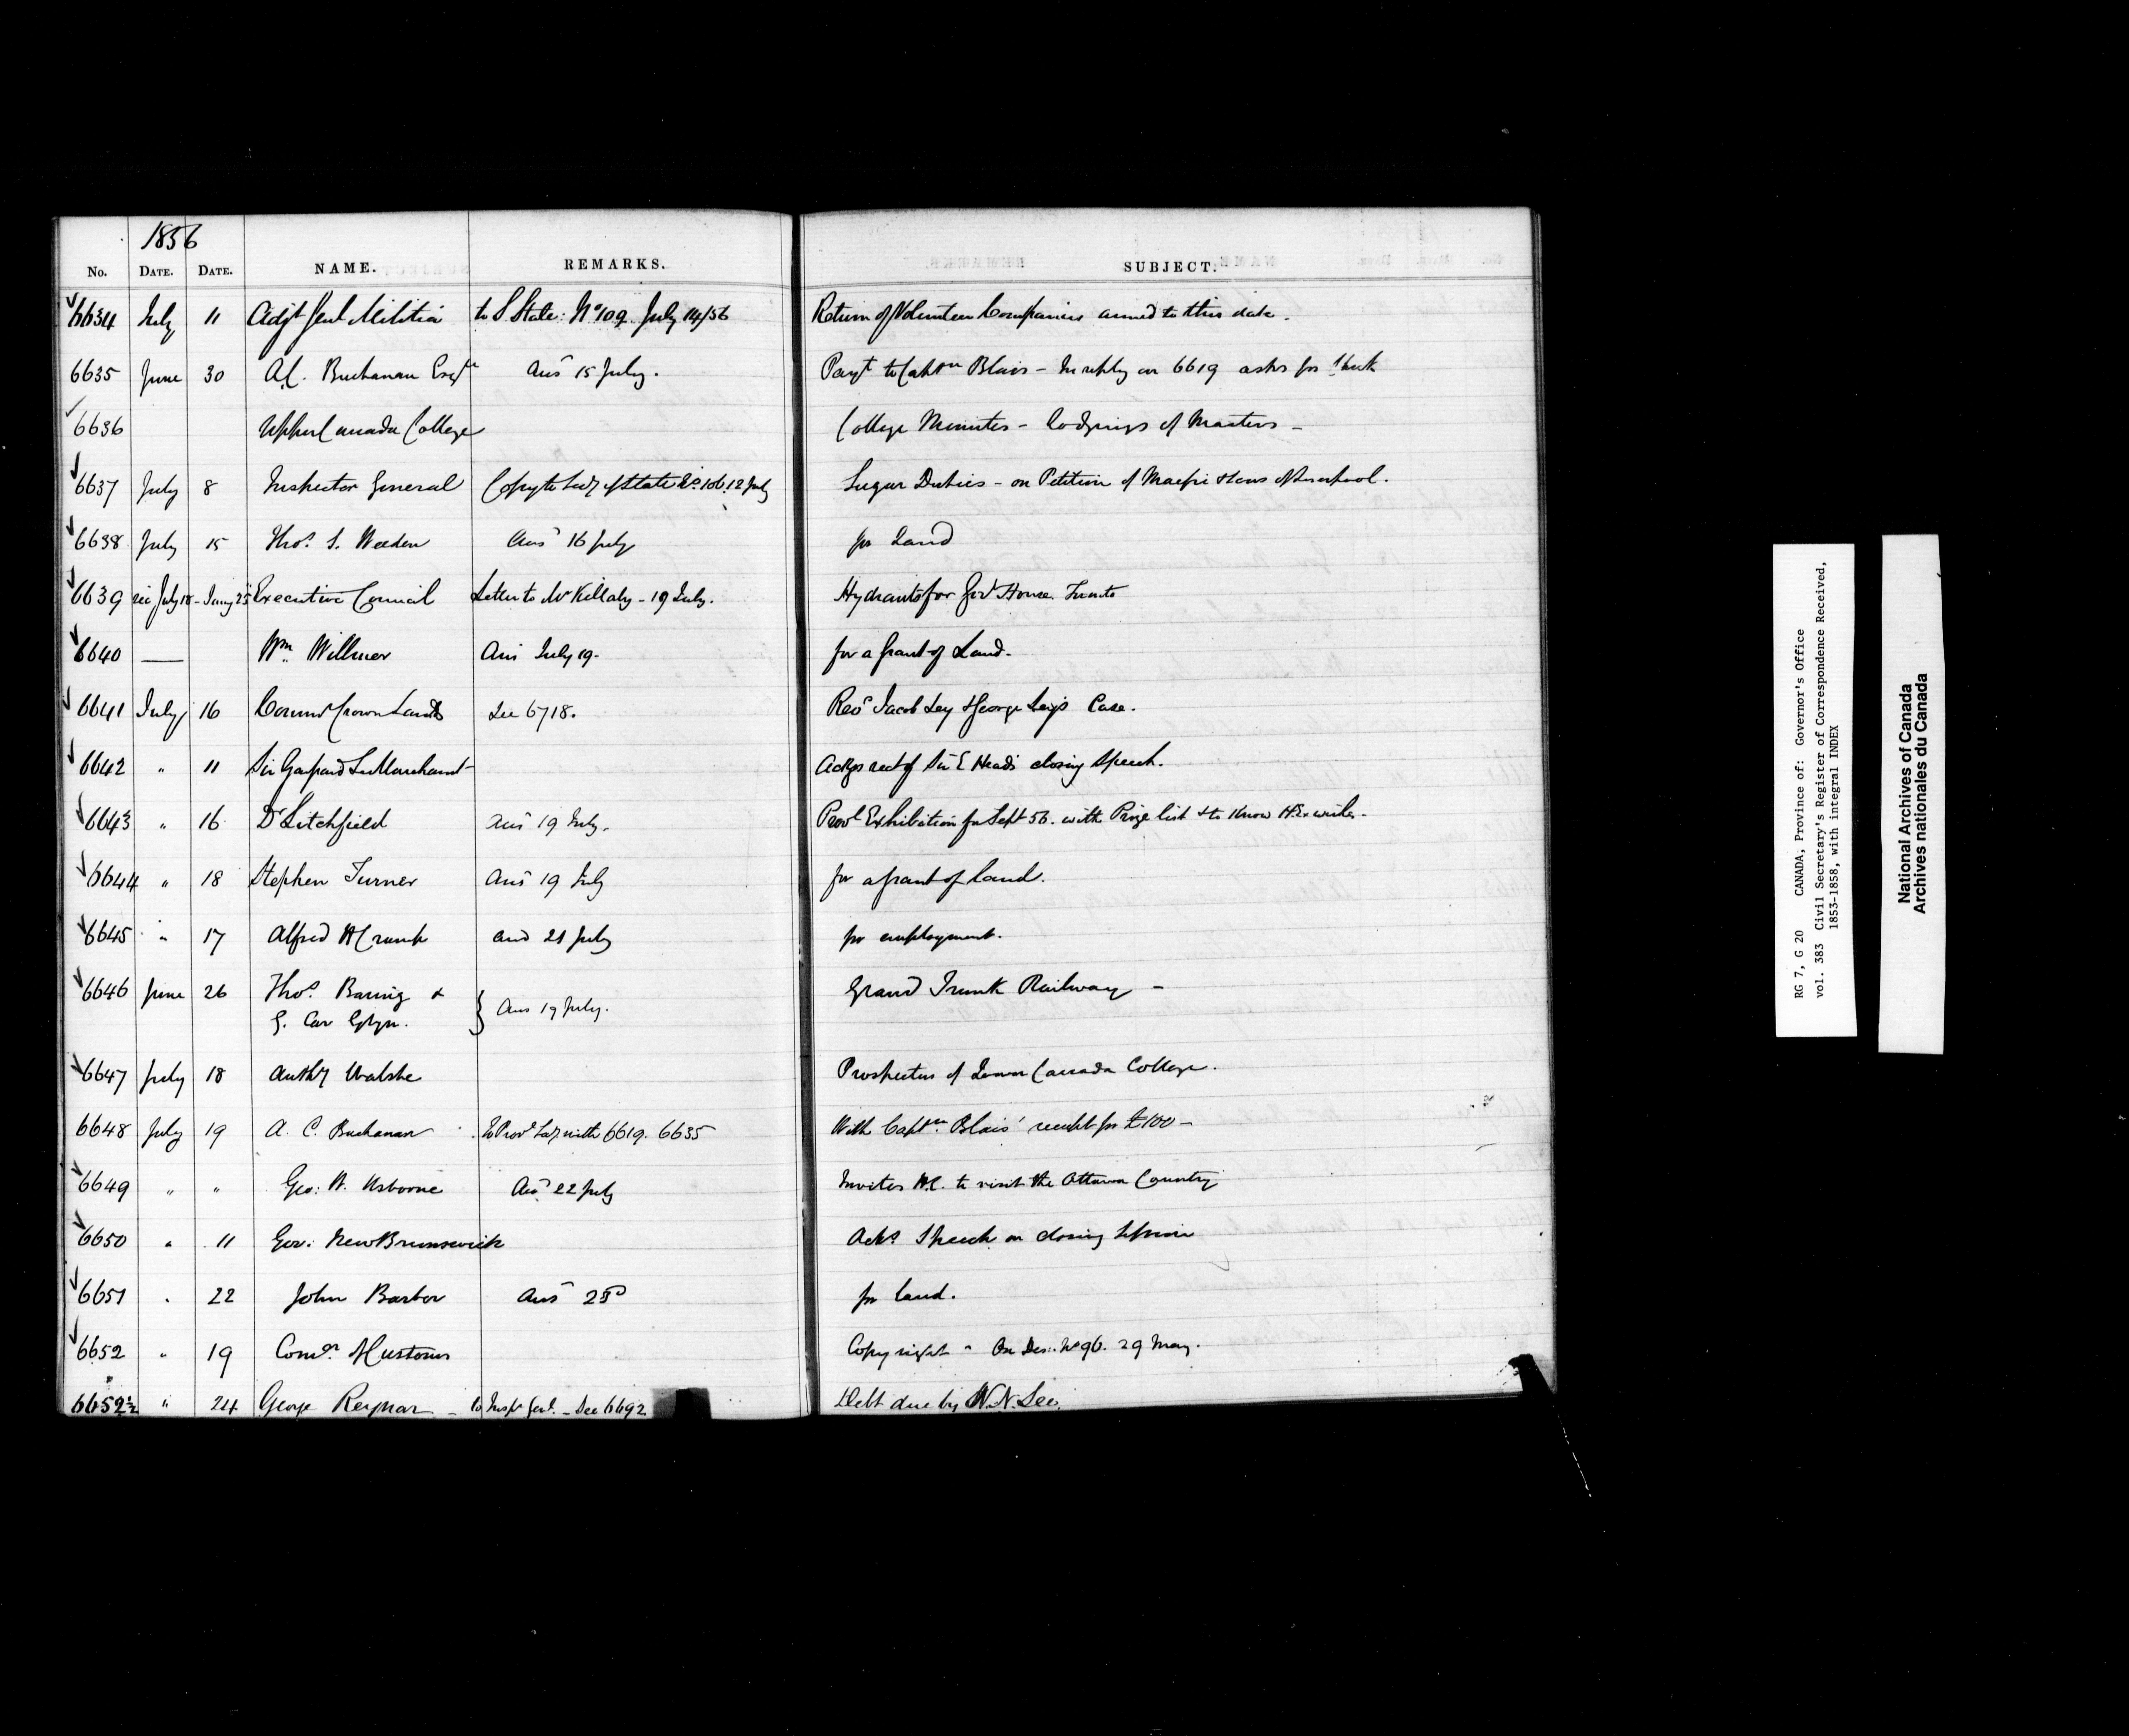 1856
No. DATE. DATE. NAME. REMARKS. SUBJECT.
6634 July 11 Adjt Genl Militia to S State: No 109. July 14/56 Return of Volunteer Companies armed to this date.
6635 June 30 A.C. Buchanan Esqre Ansd 15 July. Payt to Captn Blais - In reply on 6619 asks for Check
6636 Upper Canada College College Minutes - Lodgings of Masters -
6637 July 8 Inspector General Copy to Secy of State No. 106. 12 July Sugar Duties - on Petition of Liverpool.
6638 July 15 Thos. S. Weeden Ansd 16 July for Land
6639 rec July 18 - Jany 25 Executive Council Letter to Mr Killaly - 19 July. Hydrants for Govt House Toronto
6640 — Wm. Willmer Ans July 19. for a grant of Land.
6641 July 16 Commr Crown Lands See 6718. Jacob Ley & George Ley's Case.
6642 " 11 Sir Gaspard LeMarchant Ackgs rect of Sir E Head's closing Speech.
6643 " 16 Dr Litchfield Ansd 19 July. Provl Exhibition for Sept 56. with Prize list & to know H.Ex wishes.
6644 " 18 Stephen Turner Ansd 19 July for a grant of land.
6645 " 17 Alfred H Crump ansd 21 July for employment.
6646 June 26 Thos. Baring & Grand Trunk Railway -
G. Car Glyn. } Ans 19 July.
6647 July 18 Anthy Walshe Prospectus of Lower Canada College.
6648 July 19 A. C. Buchanan To Provl Secy with 6619. 6635 With Captn. Blais' receipt for £100 -
6649 " " Geo: W. Usborne Ansd 22 July Invites H.E. to visit the Ottawa Country
6650 " 11 Gov. New Brunswick Acks Speech on closing Session
6651 " 22 John Barber Ansd for land.
6652 " 19 Comrs. of Customs Copyright - On Des. No 96. 29 May.
6652½ " 24 George Reynar - to Inspr Genl. - See 6692 Debt due by W.N. Lee.
RG 7, G 20 CANADA, Province of: Governor's Office
vol. 383 Civil Secretary's Register of Correspondence Received,
1853-1858, with integral INDEX
National Archives of Canada
Archives nationales du Canada